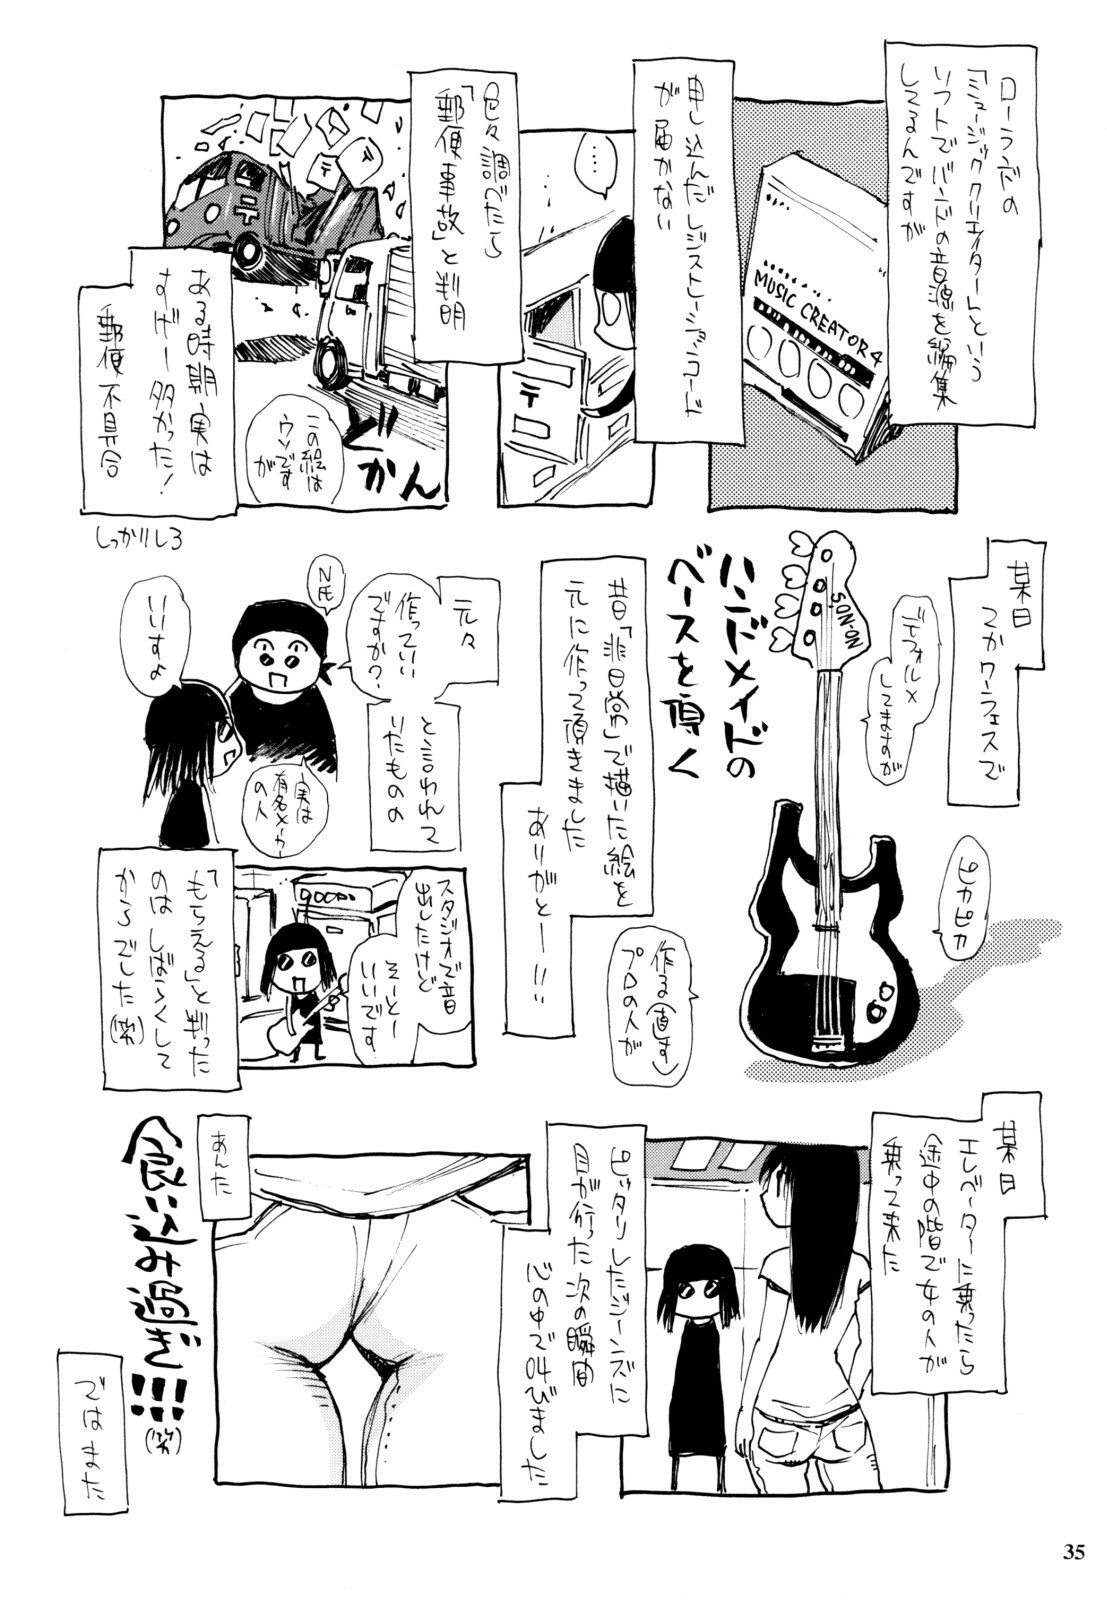 ローランドの
「ミュージッククリエイター」という
ソフトでバンドの音源を編集
してるんですが
MUSIC CREATOR 4
申し込んだレジストレーションコード
が届かない
・・・
〒
色々調べたら
「郵便事故」と判明
〒
〒
どかん
この絵は
ウソです
が
ある時期実は
すげー多かった!
郵便不具合
しっかりしろ
某日
マかワフェスで
デフォルメ
してますのが
SON-ON
ピカピカ
ハンドメイドの
ベースを頂く
昔「非日常」で描いた絵を
元に作って頂きました
ありがとー!!
作る(直す)
プロの人が
元々
N氏
作っていい
ですか?
いいすよ
と言われて
いたものの
実は
有名メーカー
の人
スタジオで音
出したけど
そーとー
いいです
「もらえる」と判った
のはしばらくして
からでした(笑)
某日
エレベーターに乗ったら
途中の階で女の人が
乗って来た
ピッタリしたジーンズに
目が行った次の瞬間
心の中で叫びました
あんた
食い込み過ぎ!!!
(笑)
ではまた
35